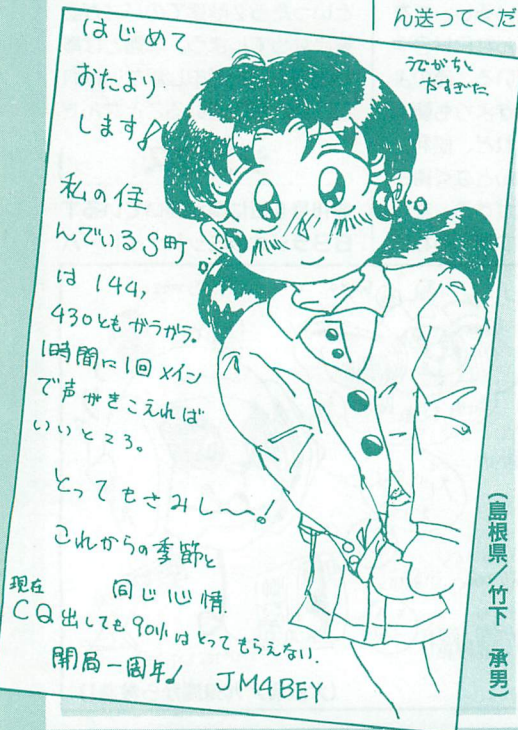 ん送ってくだ
はじめて
おたより
します♪
私の住
んでいるS町
は 144,
430ともガラガラ。
1時間に1回メイン
で声がきこえれば
いいところ。
とってもさみし〜!
これからの季節と
同じ心情.
現在
CQ出しても90%はとってもらえない.
開局一周年!
JM4BEY
うでがちと
太すぎた
(島根県/竹下 承男)